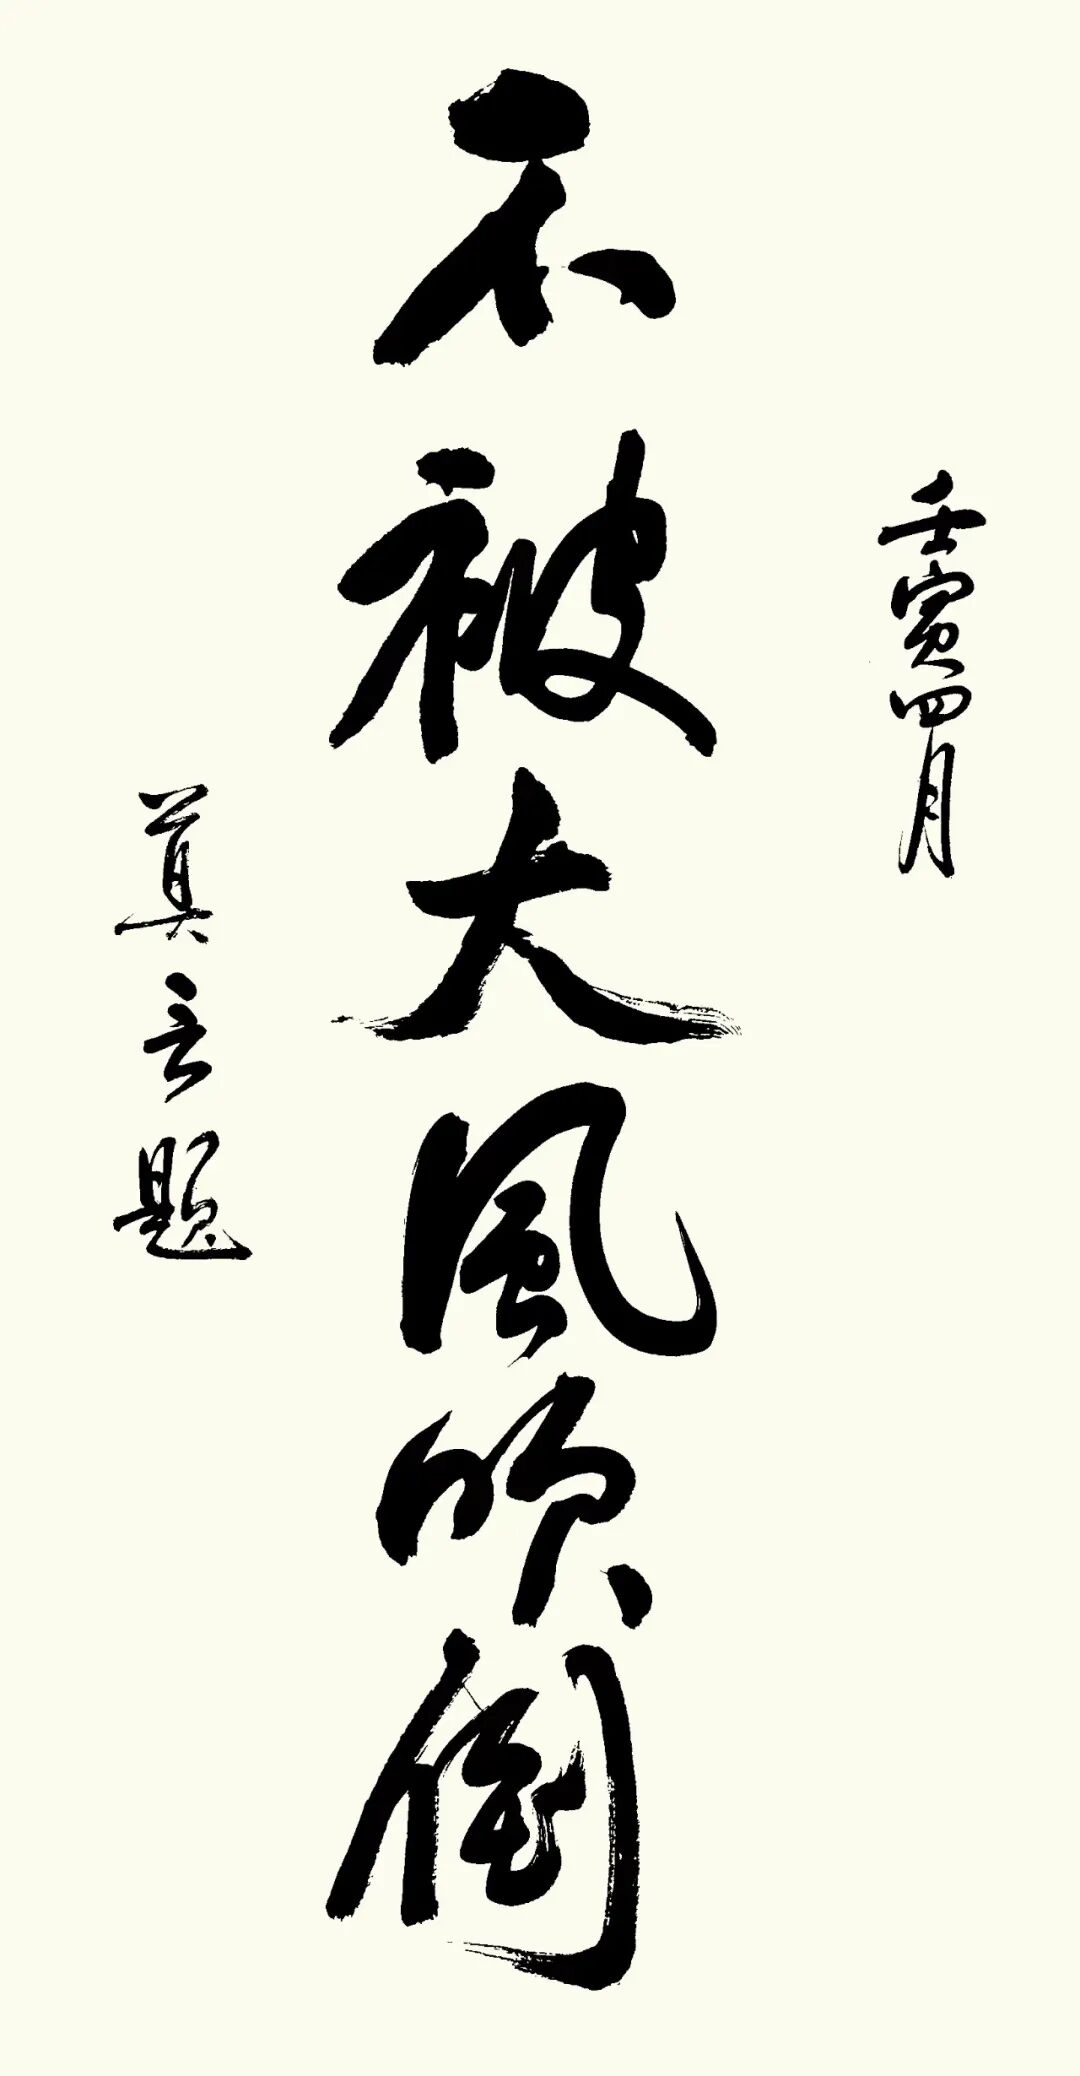 壬寅四月
不被大風吹倒
莫言題